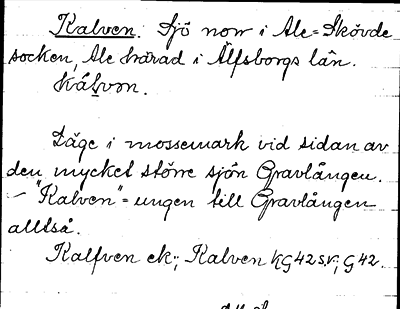 Kalven. Sjö norr i Ale-Skövde
socken, Ale härad i Älfsborgs län.
kálvon.
Läge i mossemark vid sidan av
den mycket större sjön Gravlången.
– "Kalven" = ungen till Gravlången
alltså.
Kalfven ek; Kalven KG42 s.v; G42.